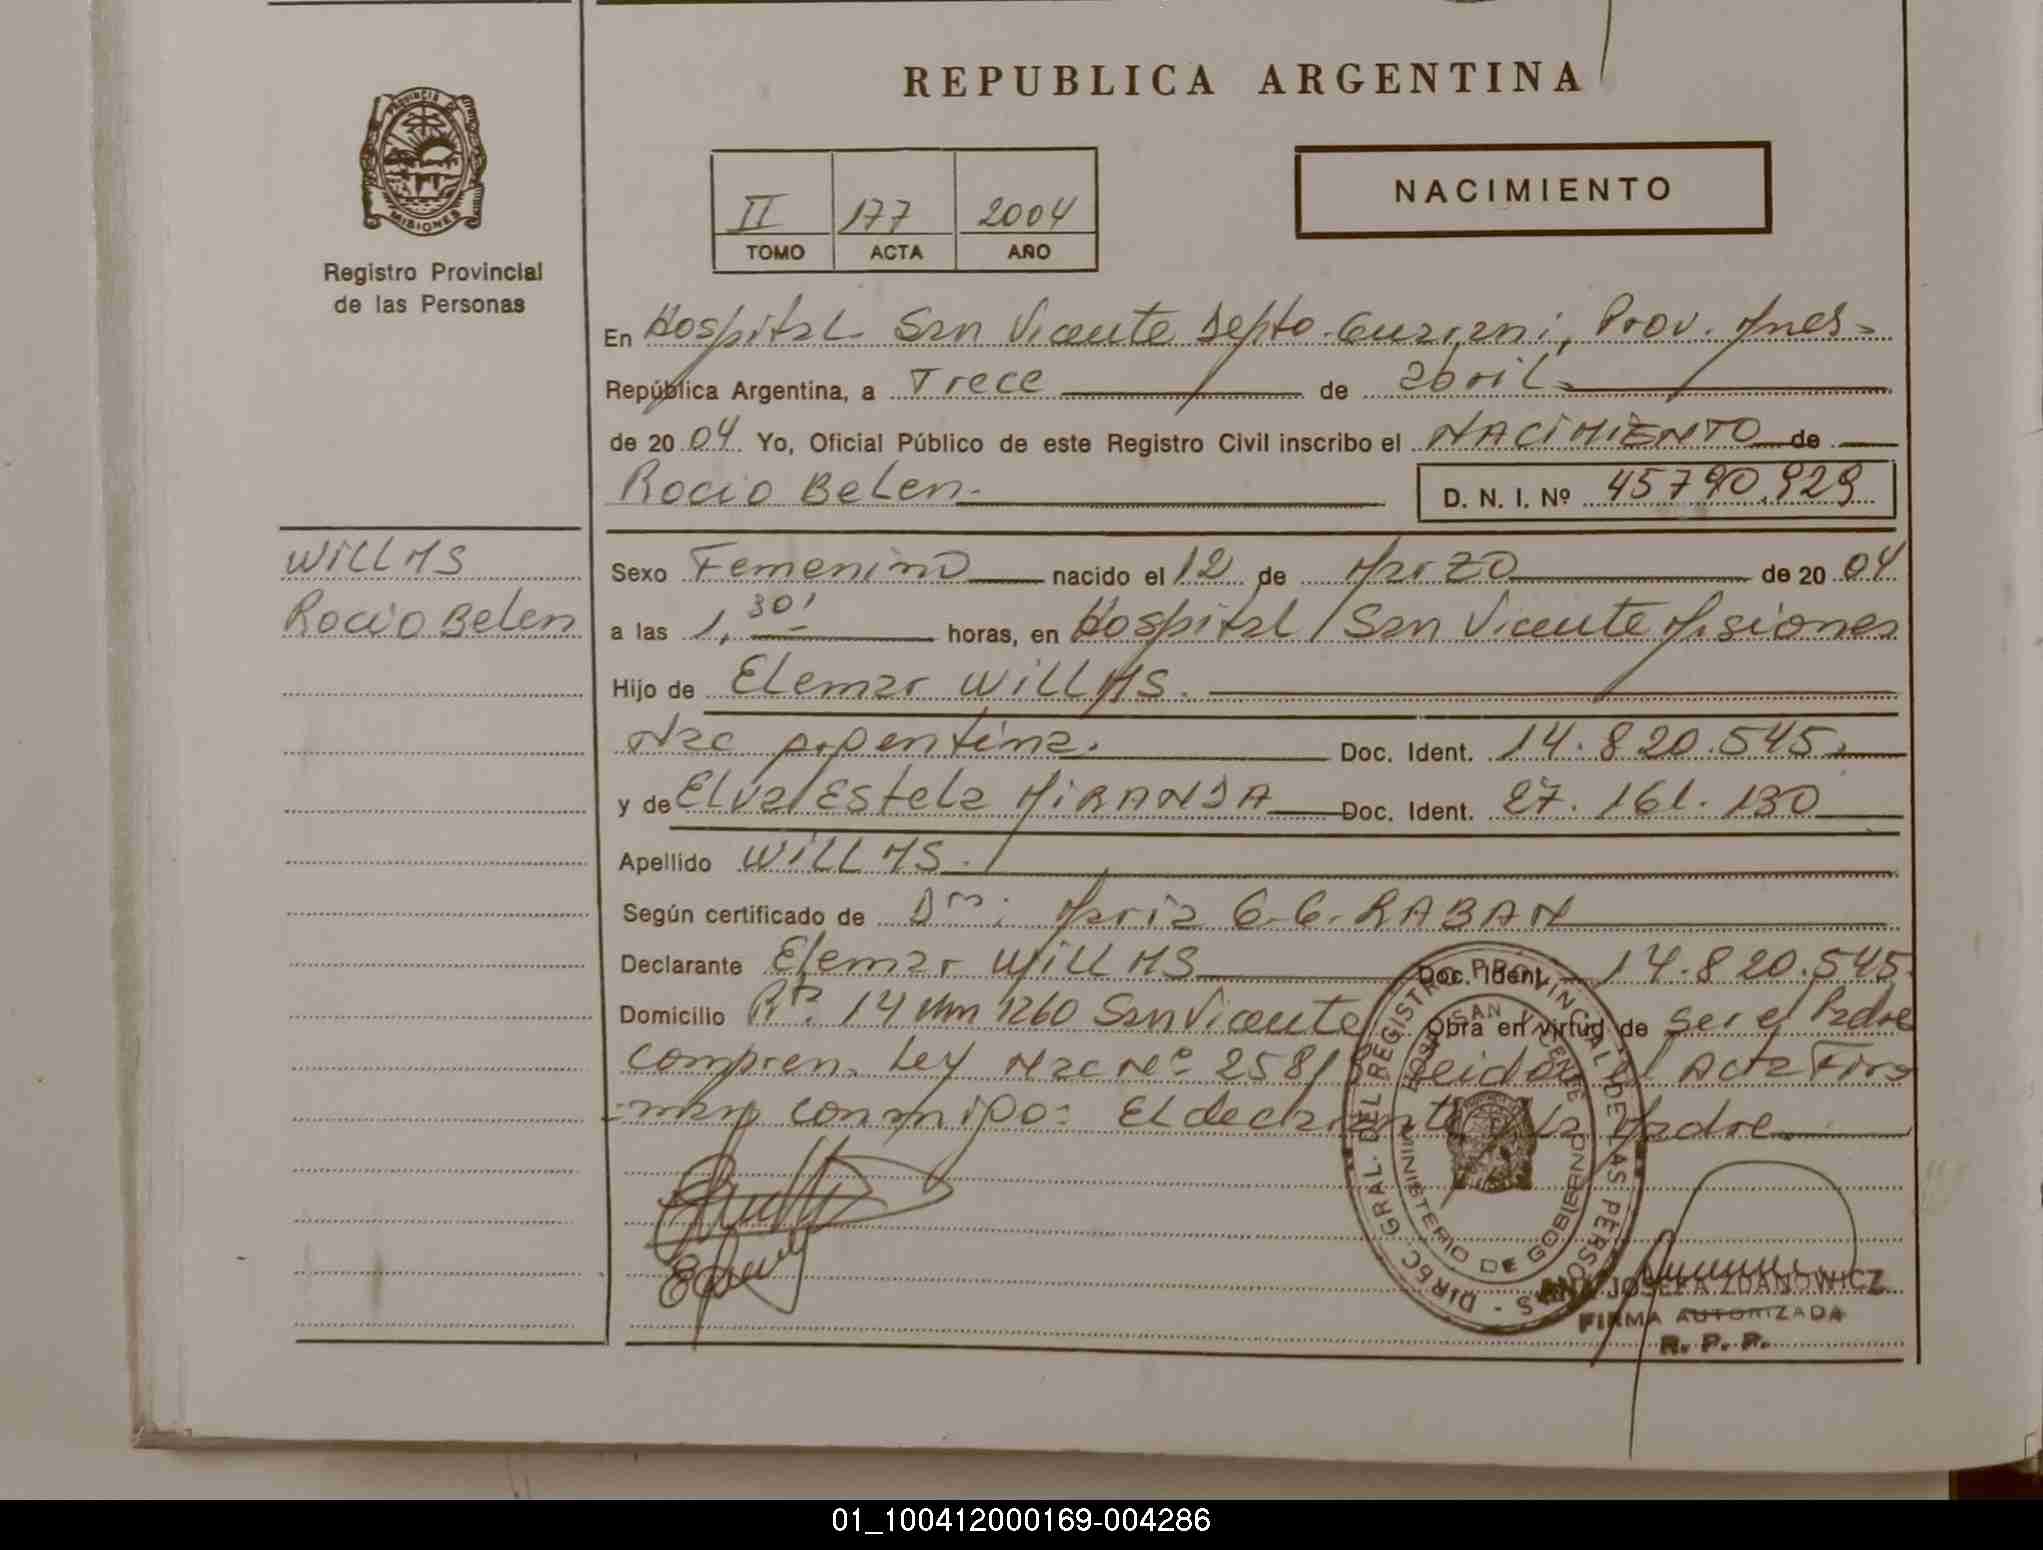 REPUBLICA ARGENTINA
PROVINCIA DE MISIONES
Registro Provincial
de las Personas
II 177 2004
TOMO ACTA AÑO
NACIMIENTO
En Hospital San Vicente Depto. Guarani, Prov. Mnes-
República Argentina, a Trece de abril
de 2004 Yo, Oficial Público de este Registro Civil inscribo el NACIMIENTO de
Rocio Belen. D. N. I. Nº 45790.929
WILLMS
Rocio Belen
Sexo Femenino nacido el 12 de Marzo de 2004
a las 1,30' horas, en Hospital San Vicente Misiones
Hijo de Elemar WILLMS.
Nac Argentina. Doc. Ident. 14.820.545
y de Elva Estela MIRANDA Doc. Ident. 27.161.130
Apellido WILLMS.
Según certificado de Dra: Maria G. G. RABAN
Declarante Elemar WILLMS Doc. Ident. 14.820.545
Domicilio Rta. 14 Km 1260 San Vicente Obra en virtud de ser el Padre
Compren. Ley Nac Nº 25818 Leida el Acta Fir
man conmigo: El declarante y la Madre
DIREC. GRAL. DEL REGISTRO PROVINCIAL DE LAS PERSONAS -
HOSP. SAN VICENTE
MINISTERIO DE GOBIERNO
ANA JOSEFA ZDANOWICZ
FIRMA AUTORIZADA
R. P. P.
01_100412000169-004286